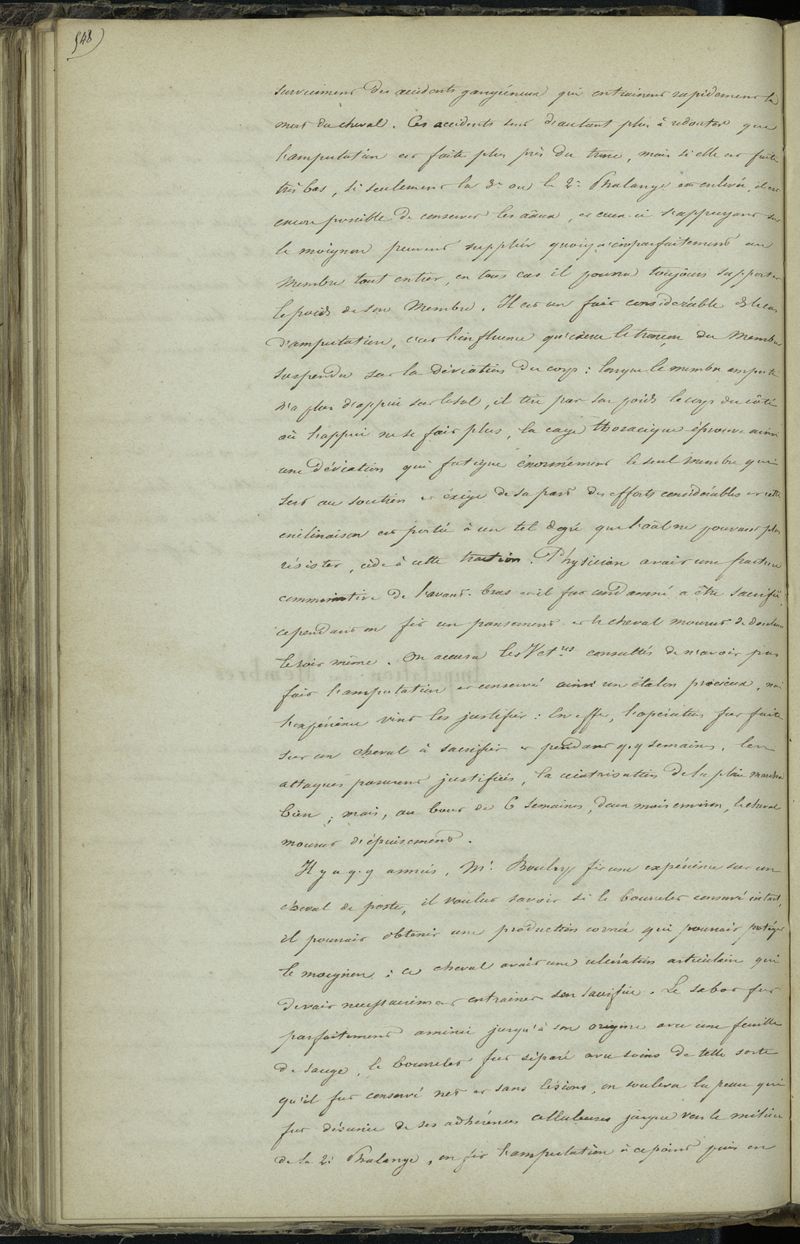 548)
surviennent des accidents gangréneux qui entrainent rapidement la
mort du cheval. Ces accidents sont d'autant plus à redouter que
l'amputation est faite plus près du tronc, mais si elle est faite
très bas, si seulement la 3e ou la 2e Phalange est enlevée, il est
encore possible de conserver les et ceux-ci s'appuyant sur
le moignon peuvent suppléer quoiq. imparfaitement au
membre tout entier, en tous cas il pourra toujours supporter
le poids de son Membre. Il est un fait considérable
d'amputation, c'est l'influence qu'exerce le tronçon du Membre
suspendu sur la déviation du corps : lorsque le membre amputé
n'a plus d'appui sur le sol, il tire par son poids le corps du côté
où l'appui ne se fait plus, la cage thoracique éprouve ainsi
une déviation qui fatigue énormément le seul membre qui
sert au soutien et exige de sa part des efforts considérables et cette
inclinaison est portée à un tel degré que l'a ne pouvant plus
résister, cède à cette traction. Physician avait une fracture
comminutive de l'avant-bras et il fut condamné à être sacrifié,
cependant on fit un pansement et le cheval mourut de douleur
le soir même. On accusa les Vetres consultés de n'avoir pas
fait l'amputation et conservé ainsi un étalon précieux, mais
l'expérience vint les justifier : En effet, l'opération fut faite
sur un cheval à sacrifier et pendant q.q semaines, les
attaques parurent justifiées, la cicatrisation de la plaie marcha
bien ; mais, au bout de 6 semaines, deux mois environ, le cheval
mourut d'épuisement.
Il y a q.q années, Mr. Bouley fit une expérience sur un
cheval de poste, il voulut savoir si le bourrelet conservé intact,
il pourrait obtenir une production cornée qui pourrait protéger
le moignon : ce cheval avait une ulcération articulaire qui
devait nécessairement entrainer son sacrifice. Le sabot fut
parfaitement aminci jusqu'à son origine avec une feuille
de sauge, le bourrelet fut séparé avec soins de telle sorte
qu'il fut conservé net et sans lésions, on souleva la peau qui
fut désunie de ses adhérences celluleuses jusque vers le milieu
de la 2e Phalange, on fit l'amputation à ce point puis on